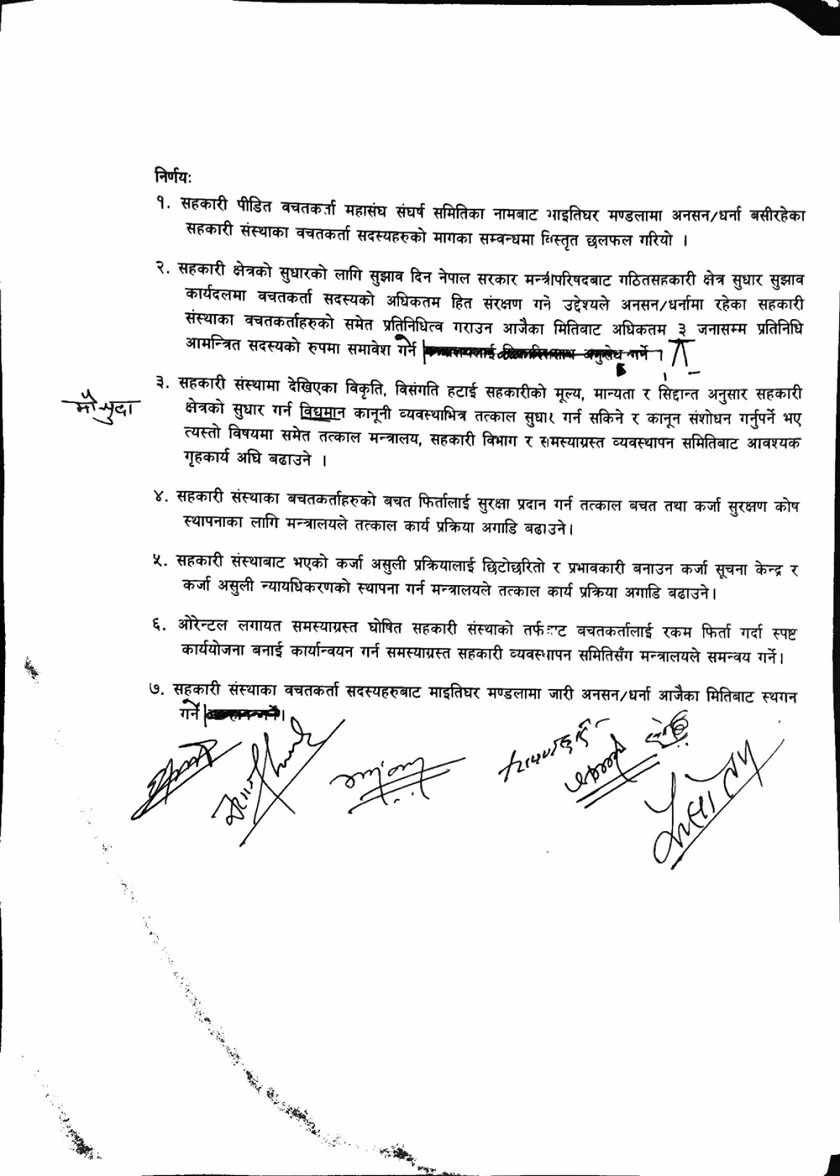 निर्णयः
१. सहकारी पीडित बचतकर्ता महासंघ संघर्ष समितिका नामबाट भाइतिघर मण्डलामा अनसन/धर्ना बसीरहेका
सहकारी संस्थाका बचतकर्ता सदस्यहरुको मागका सम्बन्धमा विस्तृत छलफल गरियो ।
२. सहकारी क्षेत्रको सुधारको लागि सुझाव दिन नेपाल सरकार मन्त्रीपरिषदबाट गठितसहकारी क्षेत्र सुधार सुझाव
कार्यदलमा बचतकर्ता सदस्यको अधिकतम हित संरक्षण गर्ने उद्देश्यले अनसन/धर्नामा रहेका सहकारी
संस्थाका बचतकर्ताहरुको समेत प्रतिनिधित्व गराउन आजैका मितिबाट अधिकतम ३ जनासम्म प्रतिनिधि
आमन्त्रित सदस्यको रुपमा समावेश गर्ने
३. सहकारी संस्थामा देखिएका विकृति, विसंगति हटाई सहकारीको मूल्य, मान्यता र सिद्दान्त अनुसार सहकारी
मौसुदा क्षेत्रको सुधार गर्न विद्यमान कानूनी व्यवस्थाभित्र तत्काल सुधार गर्न सकिने र कानून संशोधन गर्नुपर्ने भए
त्यस्तो विषयमा समेत तत्काल मन्त्रालय, सहकारी विभाग र समस्याग्रस्त व्यवस्थापन समितिबाट आवश्यक
गृहकार्य अघि बढाउने ।
४. सहकारी संस्थाका बचतकर्ताहरुको बचत फिर्तालाई सुरक्षा प्रदान गर्न तत्काल बचत तथा कर्जा सुरक्षण कोष
स्थापनाका लागि मन्त्रालयले तत्काल कार्य प्रक्रिया अगाडि बढाउने।
५. सहकारी संस्थाबाट भएको कर्जा असुली प्रक्रियालाई छिटोछरितो र प्रभावकारी बनाउन कर्जा सूचना केन्द्र र
कर्जा असुली न्यायधिकरणको स्थापना गर्न मन्त्रालयले तत्काल कार्य प्रक्रिया अगाडि बढाउने।
६. ओरेन्टल लगायत समस्याग्रस्त घोषित सहकारी संस्थाको तर्फबाट बचतकर्तालाई रकम फिर्ता गर्दा स्पष्ट
कार्ययोजना बनाई कार्यान्वयन गर्न समस्याग्रस्त सहकारी व्यवस्थापन समितिसँग मन्त्रालयले समन्वय गर्ने।
७. सहकारी संस्थाका बचतकर्ता सदस्यहरुबाट माइतिघर मण्डलामा जारी अनसन/धर्ना आजैका मितिबाट स्थगन
गर्ने